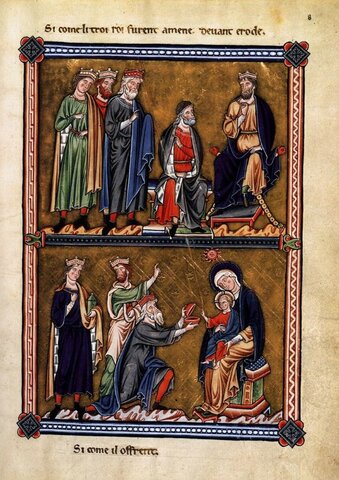 8
Si come li troi roi furent amene devant erode.
Si come il offrent.